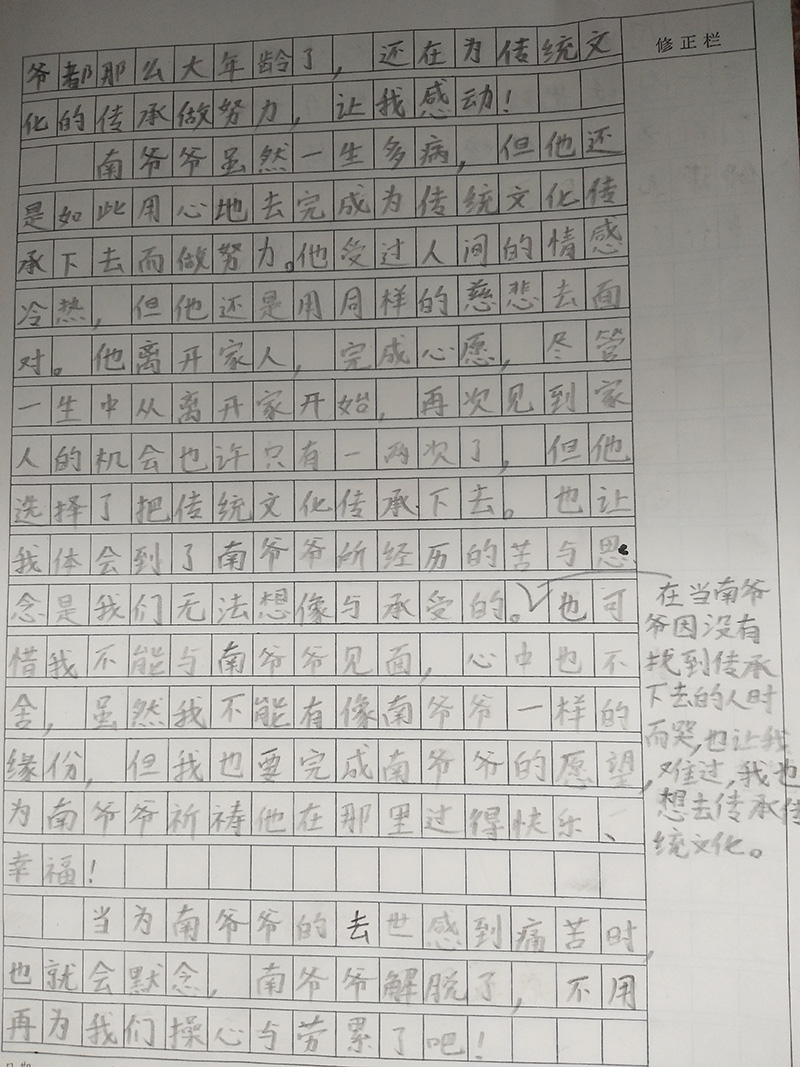 修正栏
爷都那么大年龄了，还在为传统文
化的传承做努力，让我感动！
南爷爷虽然一生多病，但他还
是如此用心地去完成为传统文化传
承下去而做努力。他受过人间的情感
冷热，但他还是用同样的慈悲去面
对。他离开家人，完成心愿，尽管
一生中从离开家开始，再次见到家
人的机会也许只有一两次了，但他
选择了把传统文化传承下去。也让
我体会到了南爷爷所经历的苦与思
念是我们无法想像与承受的。也可
惜我不能与南爷爷见面，心中也不
舍，虽然我不能有像南爷爷一样的
缘份，但我也要完成南爷爷的愿望，
为南爷爷祈祷他在那里过得快乐、
幸福！
当为南爷爷的去世感到痛苦时，
也就会默念，南爷爷解脱了，不用
再为我们操心与劳累了吧！
在当南爷
爷因没有
找到传承
下去的人时
而哭，也让我
难过，我也
想去传承传
统文化。